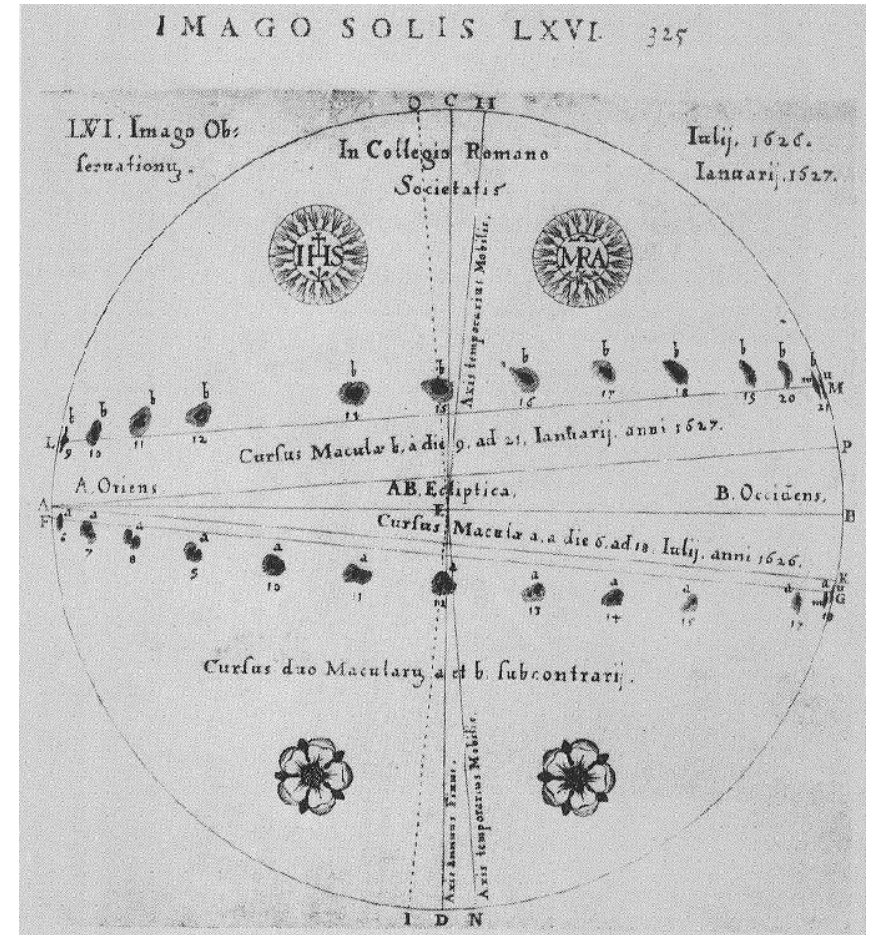 IMAGO SOLIS LXVI. 325
O C H
LXVI. Imago Ob-
seruationũ.
In Collegio Romano
Societatis
Iulij. 1626.
Ianuarij. 1627.
IHS
MRA
Axis temporarius Mobilis.
b b b b b b b b b b b b b
L 9 10 11 12 14 15 16 17 18 19 20 21 m u M
Cursus Maculæ b, à die 9. ad 21. Ianuarij. anni 1627.
P
A. Oriens
AB. Ecliptica.
B. Occidens.
A E B
F
Cursus Maculæ a, a die 6. ad 18. Iulij. anni 1626.
a a a a a a a a a a a a
6 7 8 9 10 11 12 13 14 15 17 m 18
K
u
G
Cursus duo Macularũ a et b subcontrarij.
Axis Annuus Fixus.
Axis temporarius Mobilis.
I D N